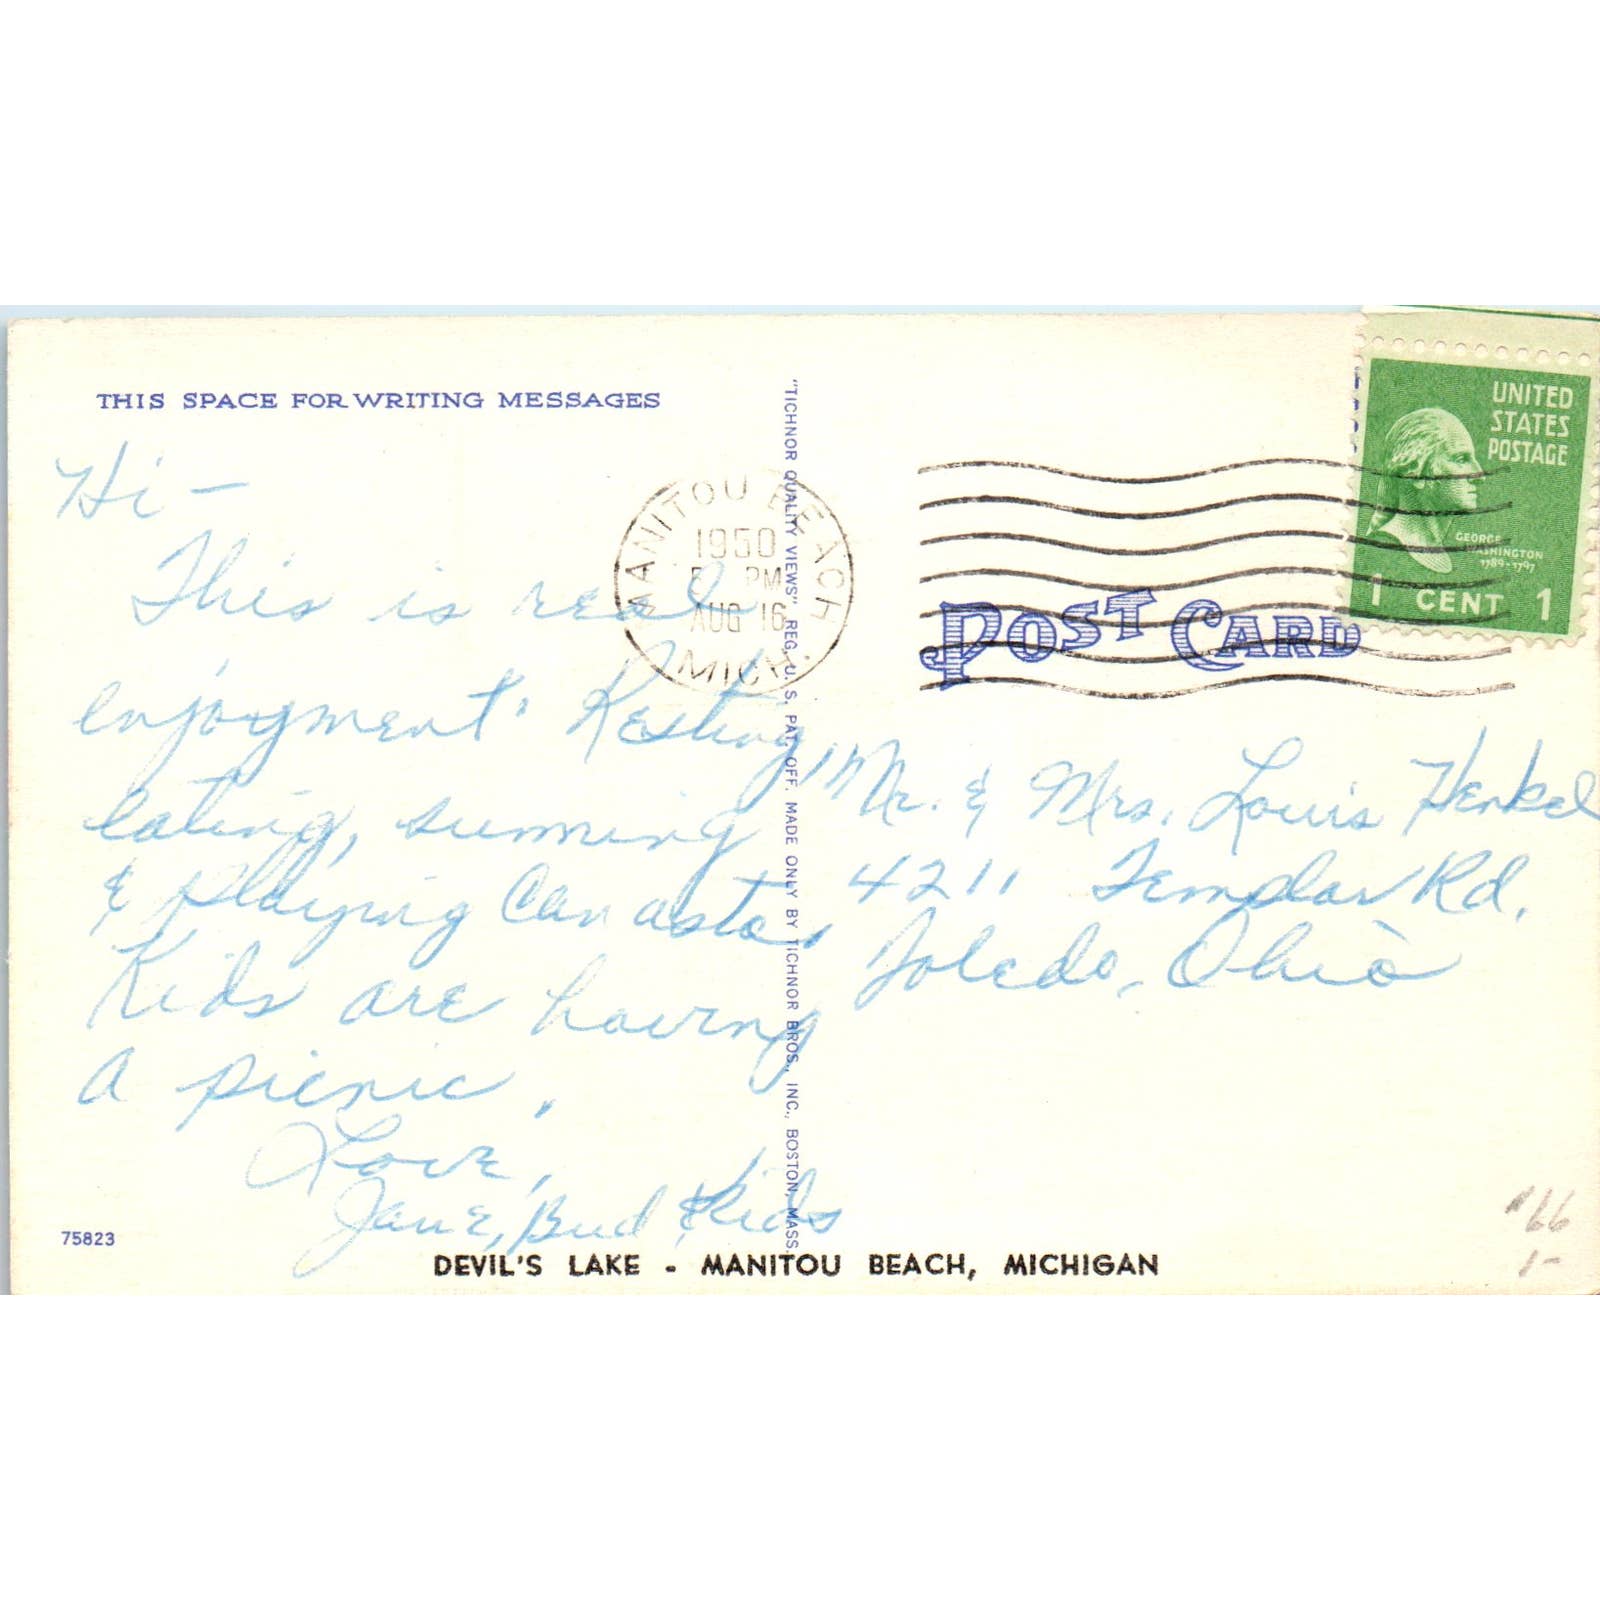 THIS SPACE FOR WRITING MESSAGES
Hi –
This is real
enjoyment. Resting,
eating, sunning
& playing Canasta.
Kids are having
a picnic.
Love,
Jane, Bud & Kids
75823
DEVIL'S LAKE - MANITOU BEACH, MICHIGAN
"TICHNOR QUALITY VIEWS" REG. U. S. PAT. OFF. MADE ONLY BY TICHNOR BROS., INC., BOSTON, MASS.
MANITOU BEACH
1950
PM
AUG 16
MICH.
UNITED
STATES
POSTAGE
GEORGE
WASHINGTON
1789-1797
1 CENT 1
POST CARD
Mr. & Mrs. Louis Henkel
4211 Templar Rd.
Toledo, Ohio
66
1-